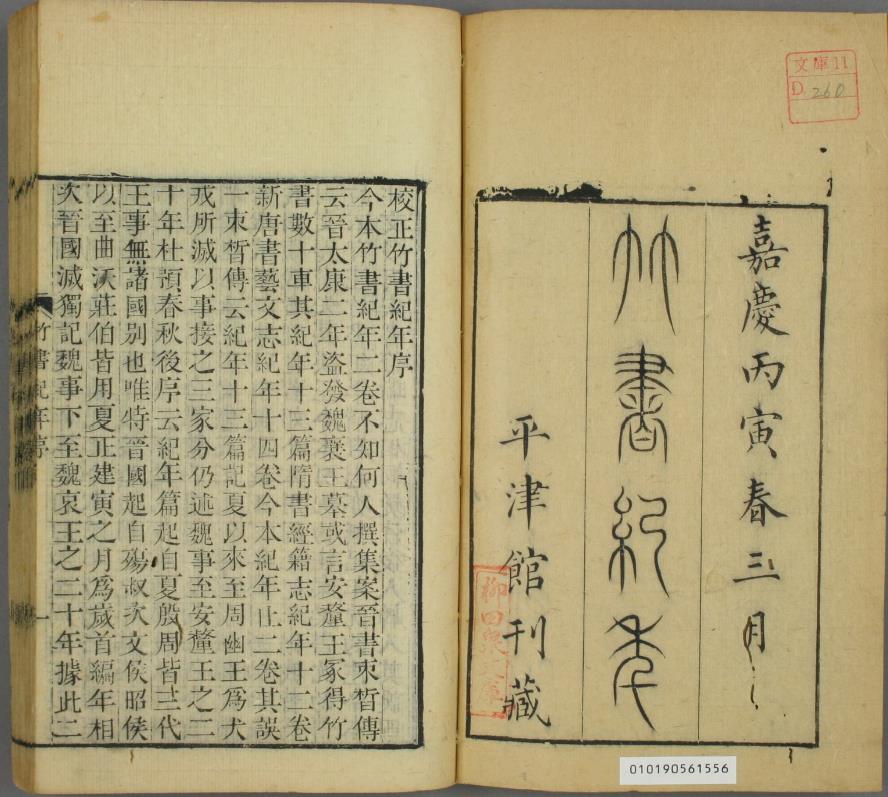 嘉慶丙寅春三月
竹書紀年
平津館刊藏
文庫11
D.260
柳田泉文庫
010190561556
校正竹書紀年序
今本竹書紀年二卷不知何人撰集案晉書束晳傳
云晉太康二年盜發魏襄王墓或言安釐王冢得竹
書數十車其紀年十三篇隋書經籍志紀年十二卷
新唐書藝文志紀年十四卷今本紀年止二卷其誤
一束晳傳云紀年十三篇記夏以來至周幽王爲犬
戎所滅以事接之三家分仍述魏事至安釐王之二
十年杜預春秋後序云紀年篇起自夏殷周皆三代
王事無諸國别也唯特晉國起自殤叔次文侯昭侯
以至曲沃莊伯皆用夏正建寅之月爲歲首編年相
次晉國滅獨記魏事下至魏哀王之二十年據此二
竹書紀年序
一